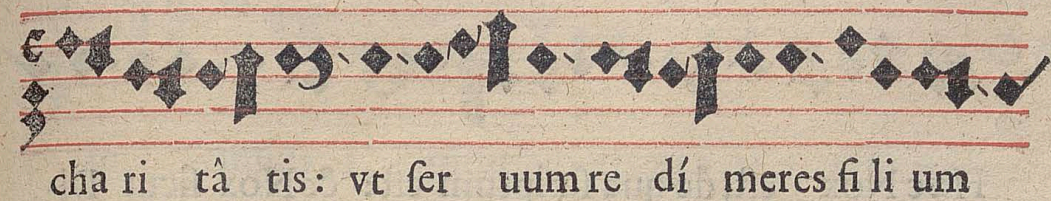 cha ri tâ tis: vt ſer uum re dí meres fi li um